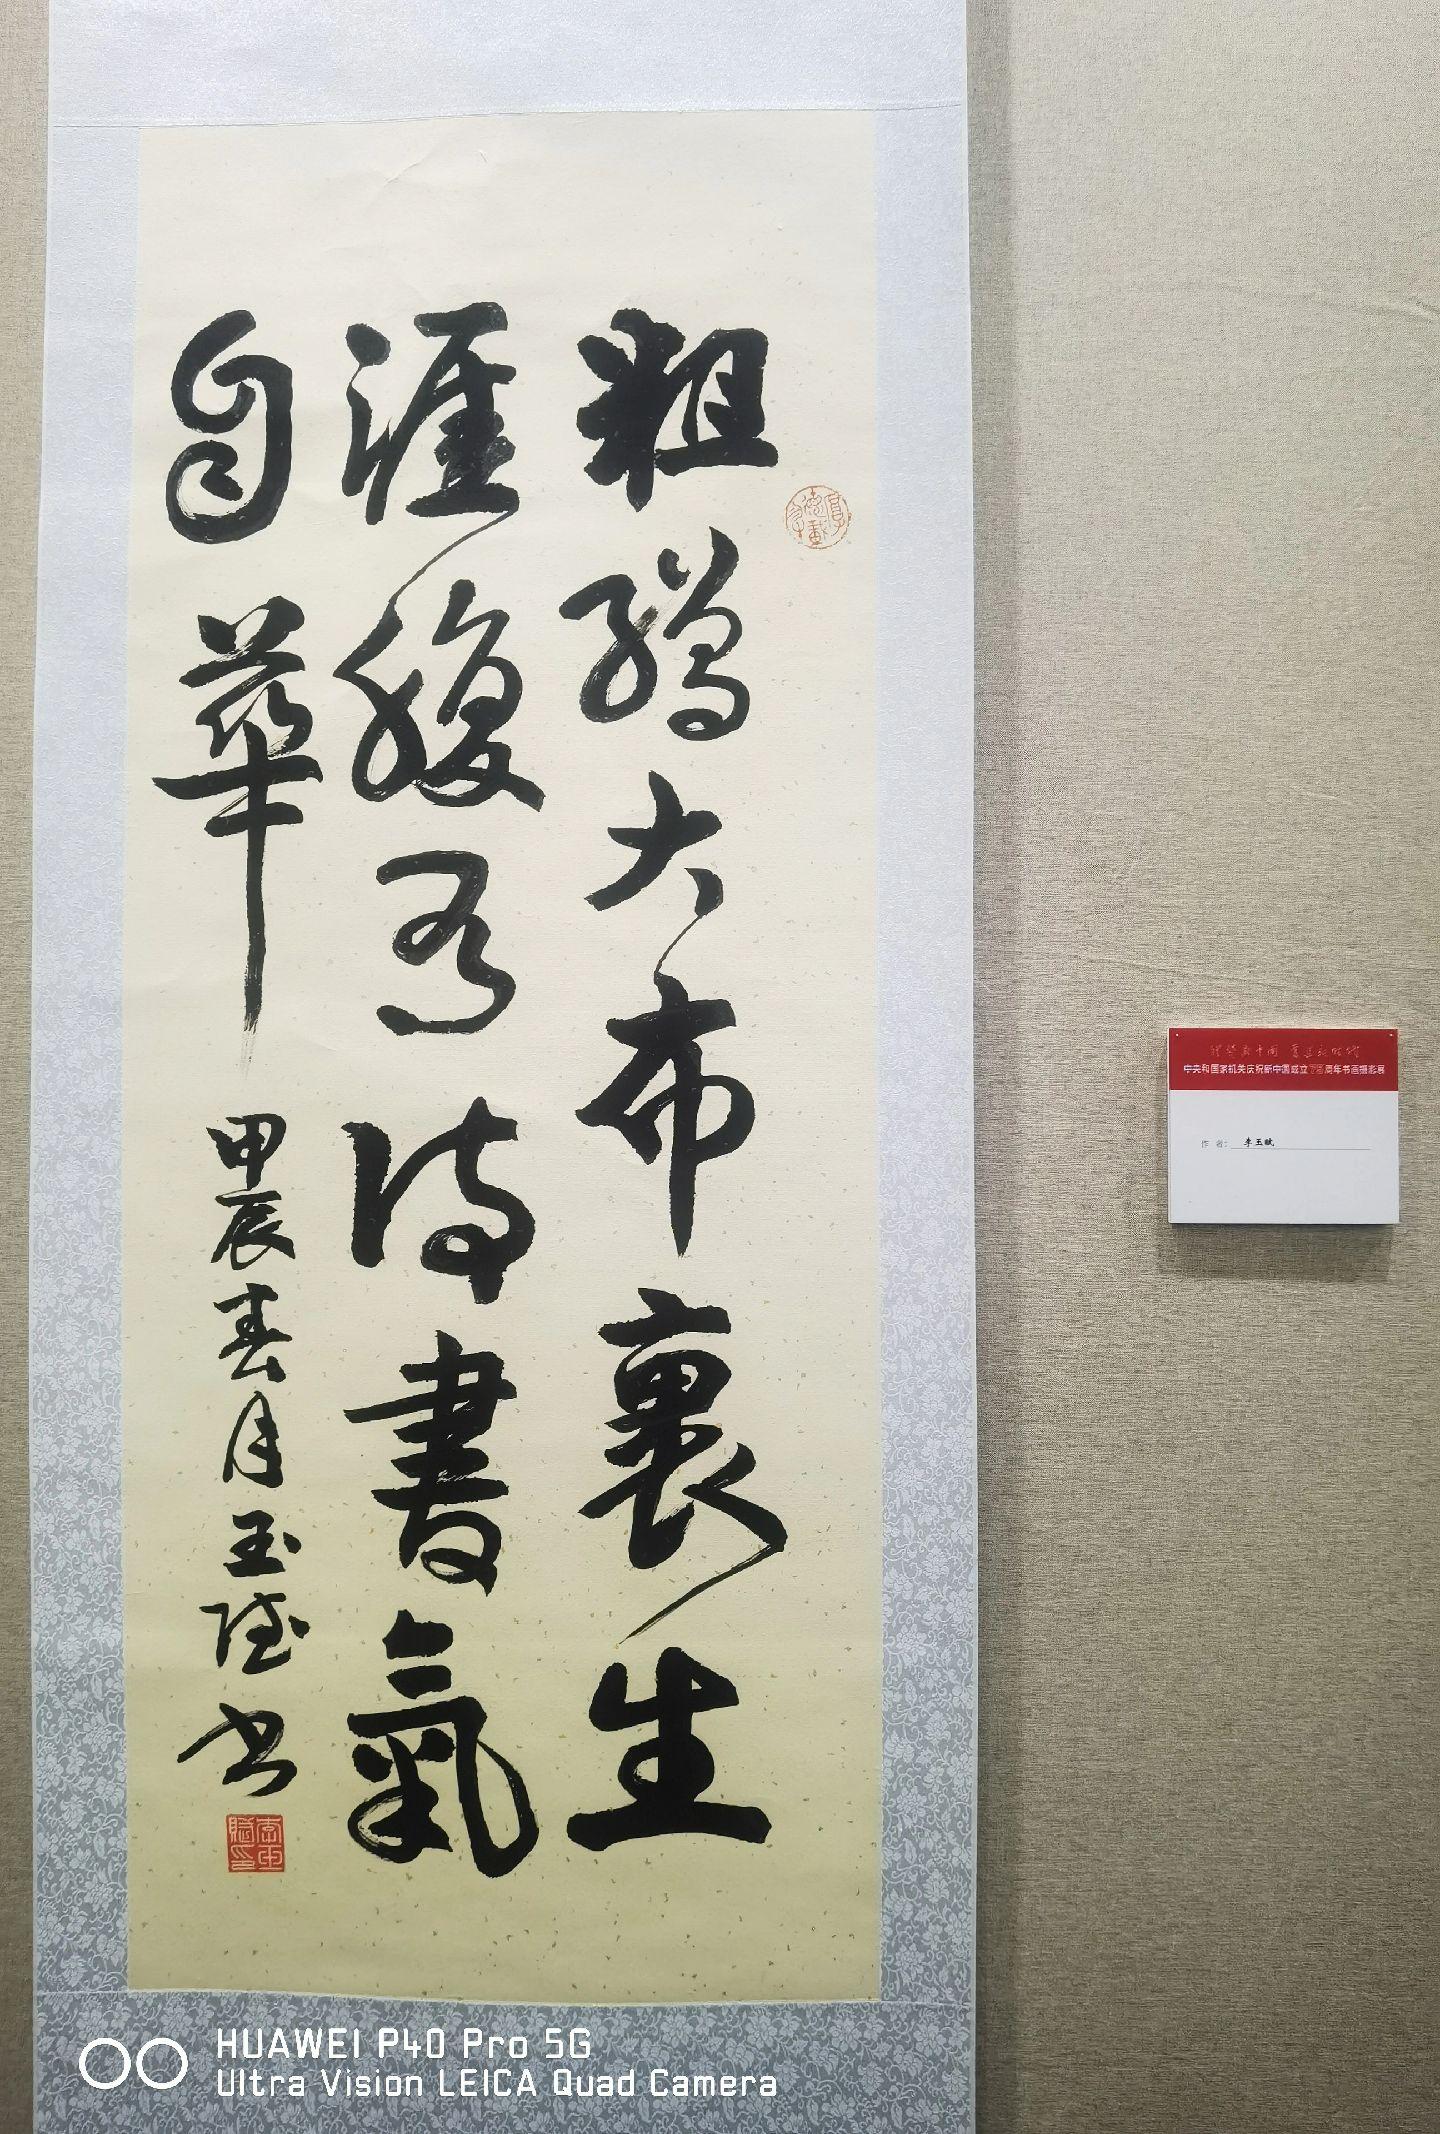 粗繒大布裹生
涯腹有詩書氣
自華
甲辰春月玉賦书
厚德載物
李玉賦印
中央和国家机关庆祝新中国成立75周年书画摄影展
作者：李玉赋
HUAWEI P40 Pro 5G
Ultra Vision LEICA Quad Camera